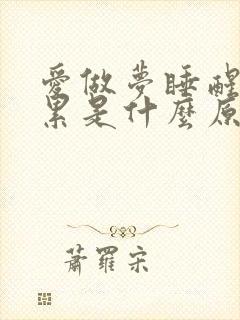 愛做夢睡醒
累是什麼原
蕭羅宋